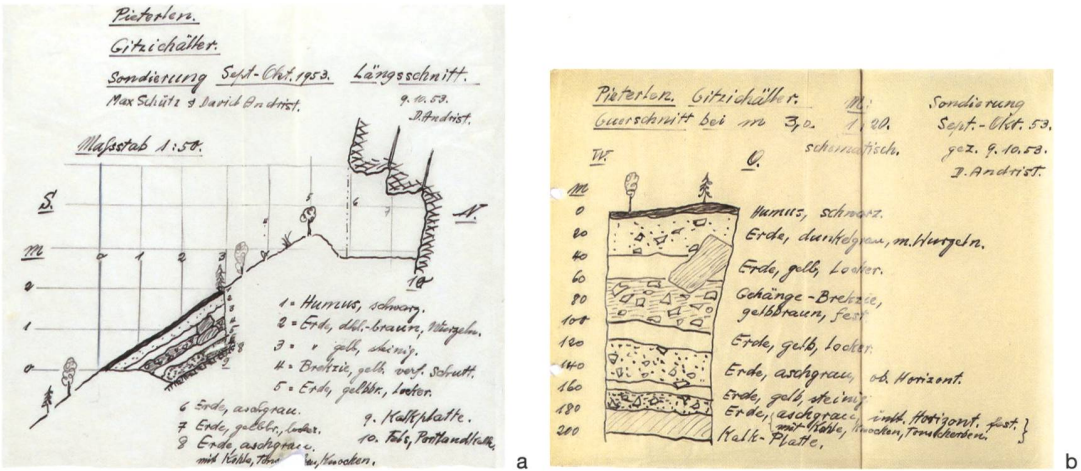 Pieterlen.
Gitzichälter.
Sondierung Sept-Okt. 1953. Längsschnitt.
Max Schütz & David Andrist. 9.10.53.
D. Andrist.
Maßstab 1:50.
S.
N.
m
0 1 2 3
5
6
7
2
1
0
8
9
10
1 = Humus, schwarz.
2 = Erde, dkl.-braun, Wurzeln.
3 = " gelb, steinig.
4 = Brekzie, gelb verf. Schutt.
5 = Erde, gelbbr., locker.
6 Erde, aschgrau.
7 Erde, gelbbr., locker.
8 Erde, aschgrau.
mit Kohle, Knochen.
9. Kalkplatte.
10. Fels, Portlandkalk.
a
Pieterlen. Gitzichälter. M: Sondierung
Querschnitt bei m 3,0. 1:20. Sept.-Okt. 53.
schematisch. gez. 9.10.53.
D. Andrist.
W. O.
m
0 Humus, schwarz.
20 Erde, dunkelgrau, m. Wurzeln.
40
60 Erde, gelb, locker.
80 Gehänge-Brekzie,
gelbbraun, fest
100
120 Erde, gelb, locker.
140 Erde, aschgrau, ob. Horizont.
160 Erde, gelb, steinig
180 Erde, aschgrau, unt. Horizont. fest.
mit Kohle, Knochen, Tonscherben.
200 Kalk-Platte.
b